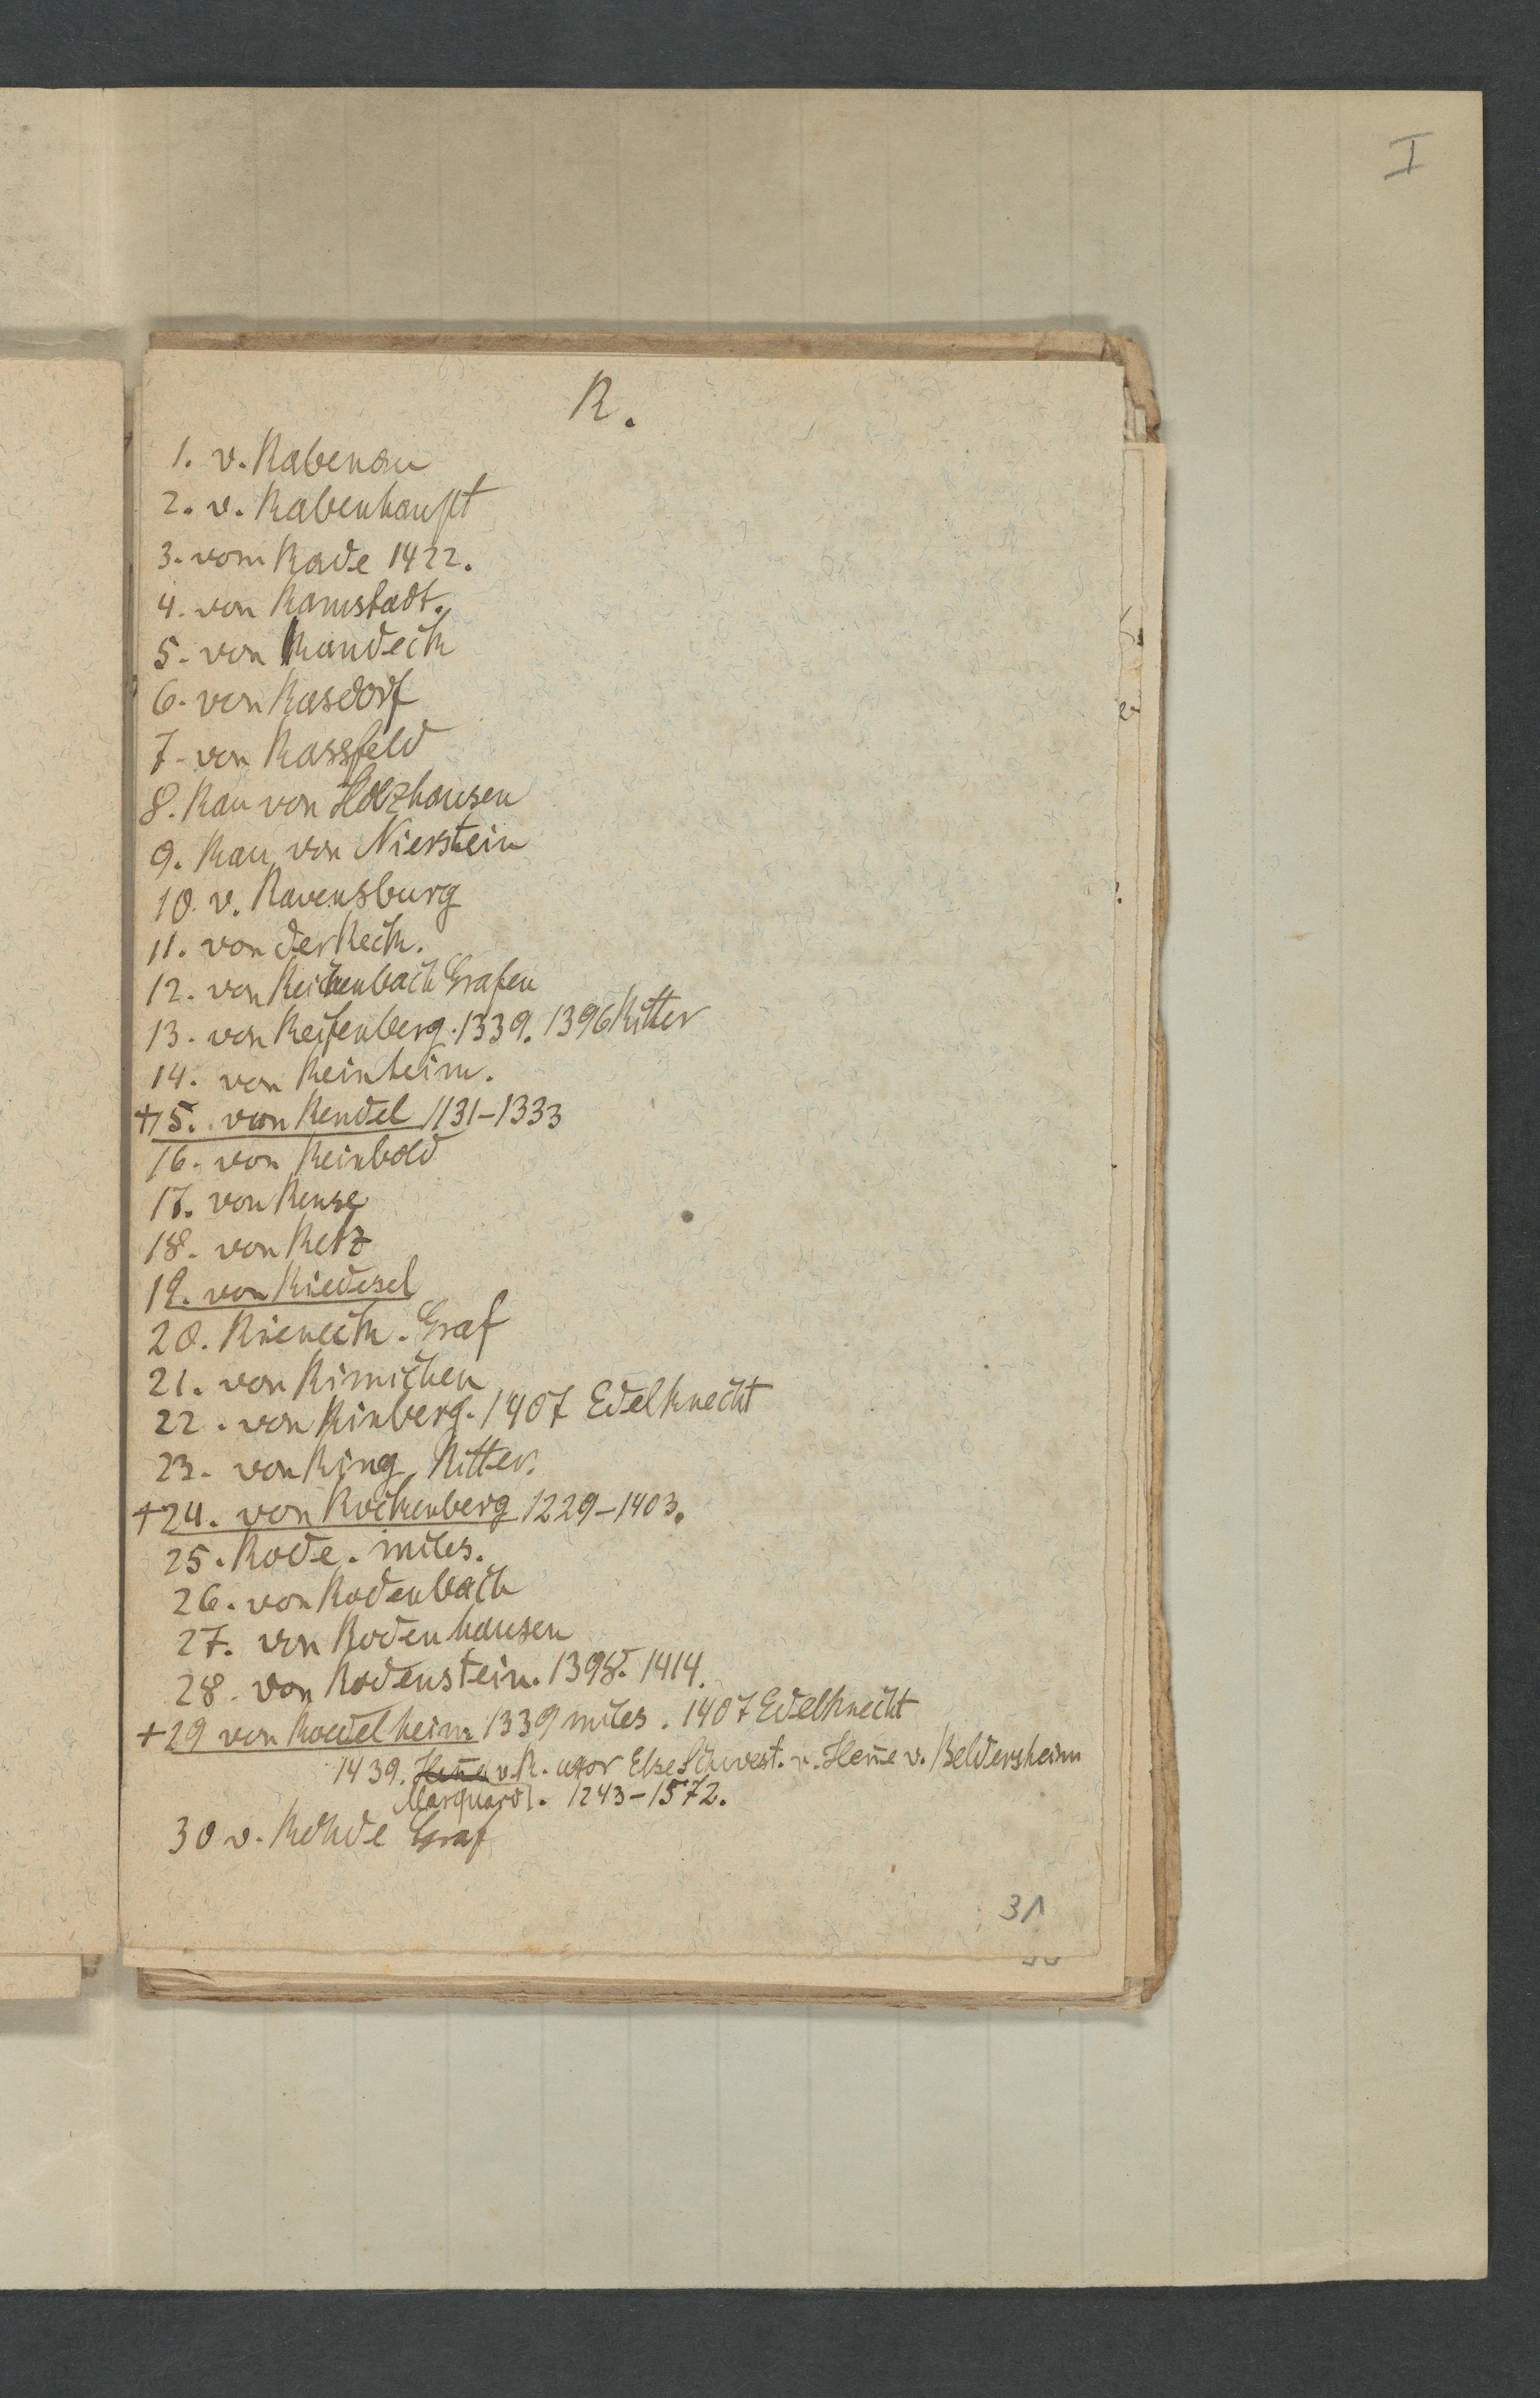 I
R.
1. v. Rabenau
2. v. Rabenhaupt
3. vom Rade 1422.
4. von Ramstadt.
5. von Randeck
6. von Rasdorf
7. von Rassfeld
8. Rau von Holzhausen
9. Rau von Nierstein
10. v. Ravensburg
11. von der Reck.
12. von Reichenbach Grafen
13. von Reifenberg. 1339. 1396 Ritter
14. von Reinheim.
+15. von Rendel 1131-1333
16. von Reinbold
17. von Rense
18. von Retz
19. von Riedesel
20. Rieneck. Graf
21. von Rimichen
22. von Rinberg. 1407 Edelknecht
23. von Ring, Ritter.
+24. von Rockenberg 1229-1403.
25. Rode. miles.
26. von Rodenbach
27. von Rodenhausen
28. von Rodenstein. 1398. 1414.
+29 von Roedelheim 1339 miles. 1407 Edelknecht
1439. Heñe v. R. uxor Else Schwest. v. Heñe v. Beldersheim
Marquard. 1243-1572.
30 v. Rohde Graf
31